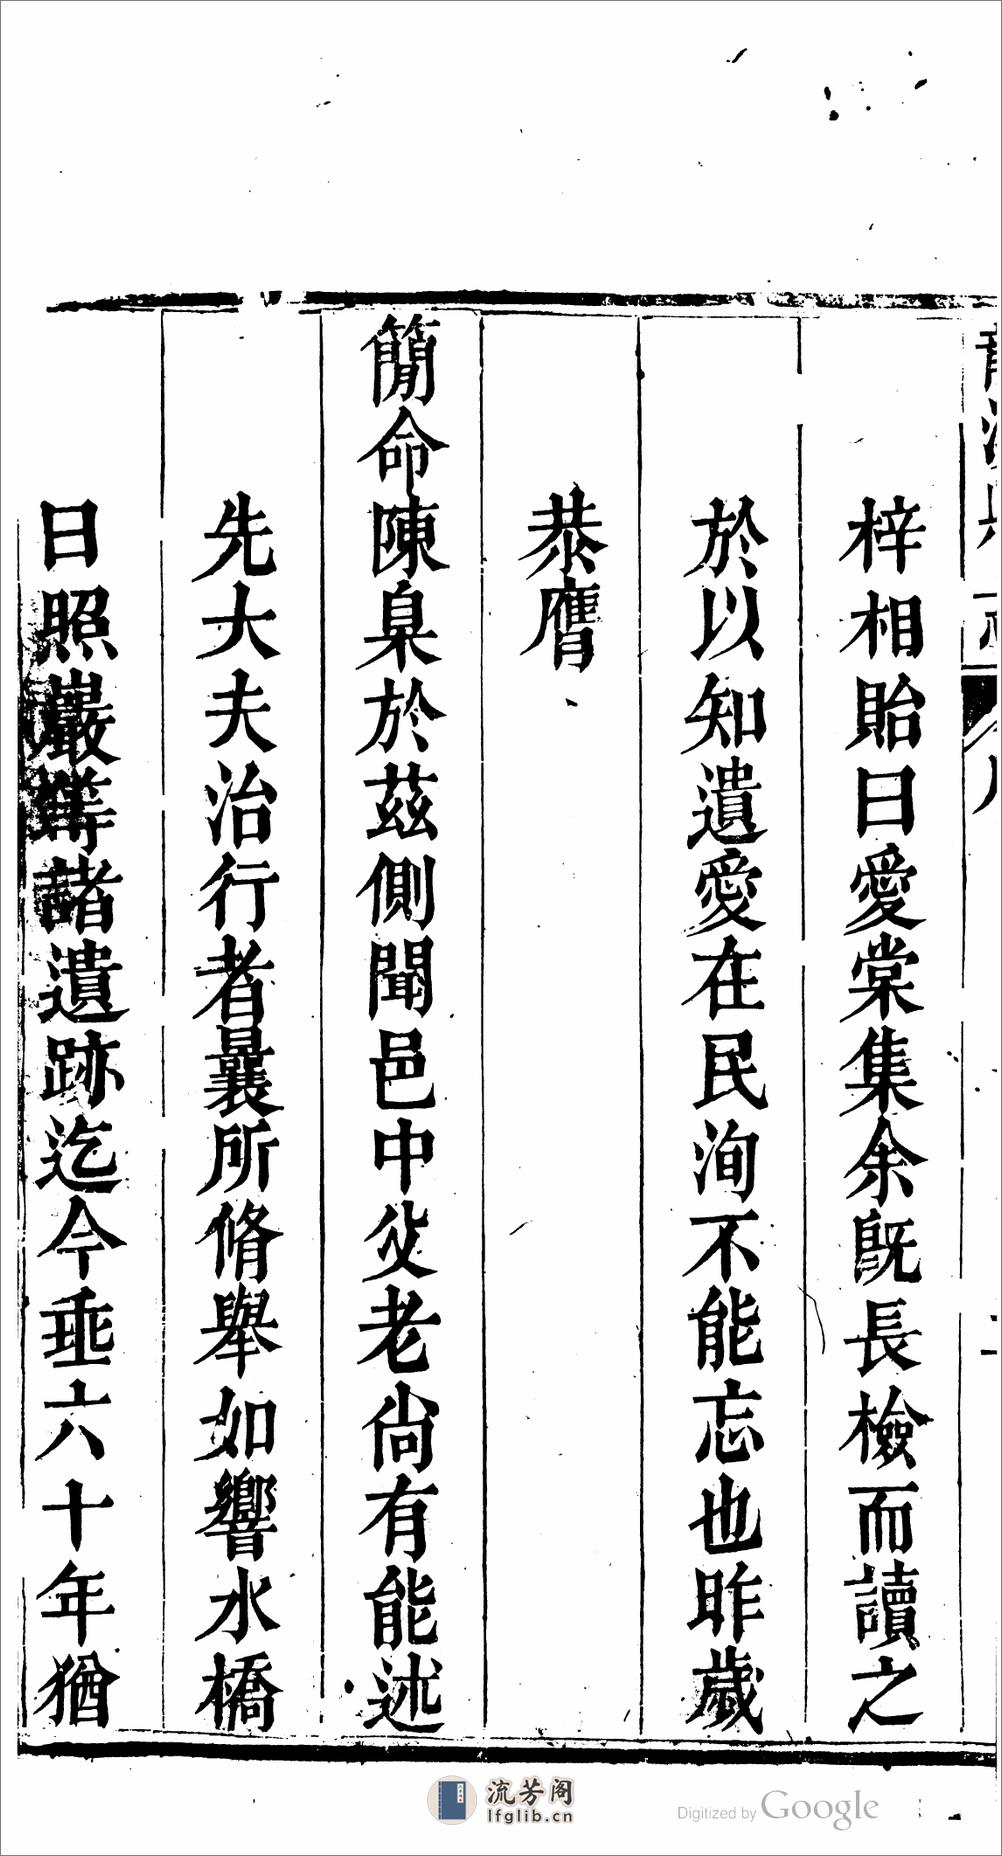 梓相貽曰愛棠集余旣長檢而讀之
於以知遺愛在民洵不能忘也昨歲
恭膺
簡命陳臬於茲側聞邑中父老尙有能述
先大夫治行者曩所脩舉如響水橋
日照巖等諸遺跡迄今垂六十年猶
流芳阁
lfglib.cn
Digitized by Google